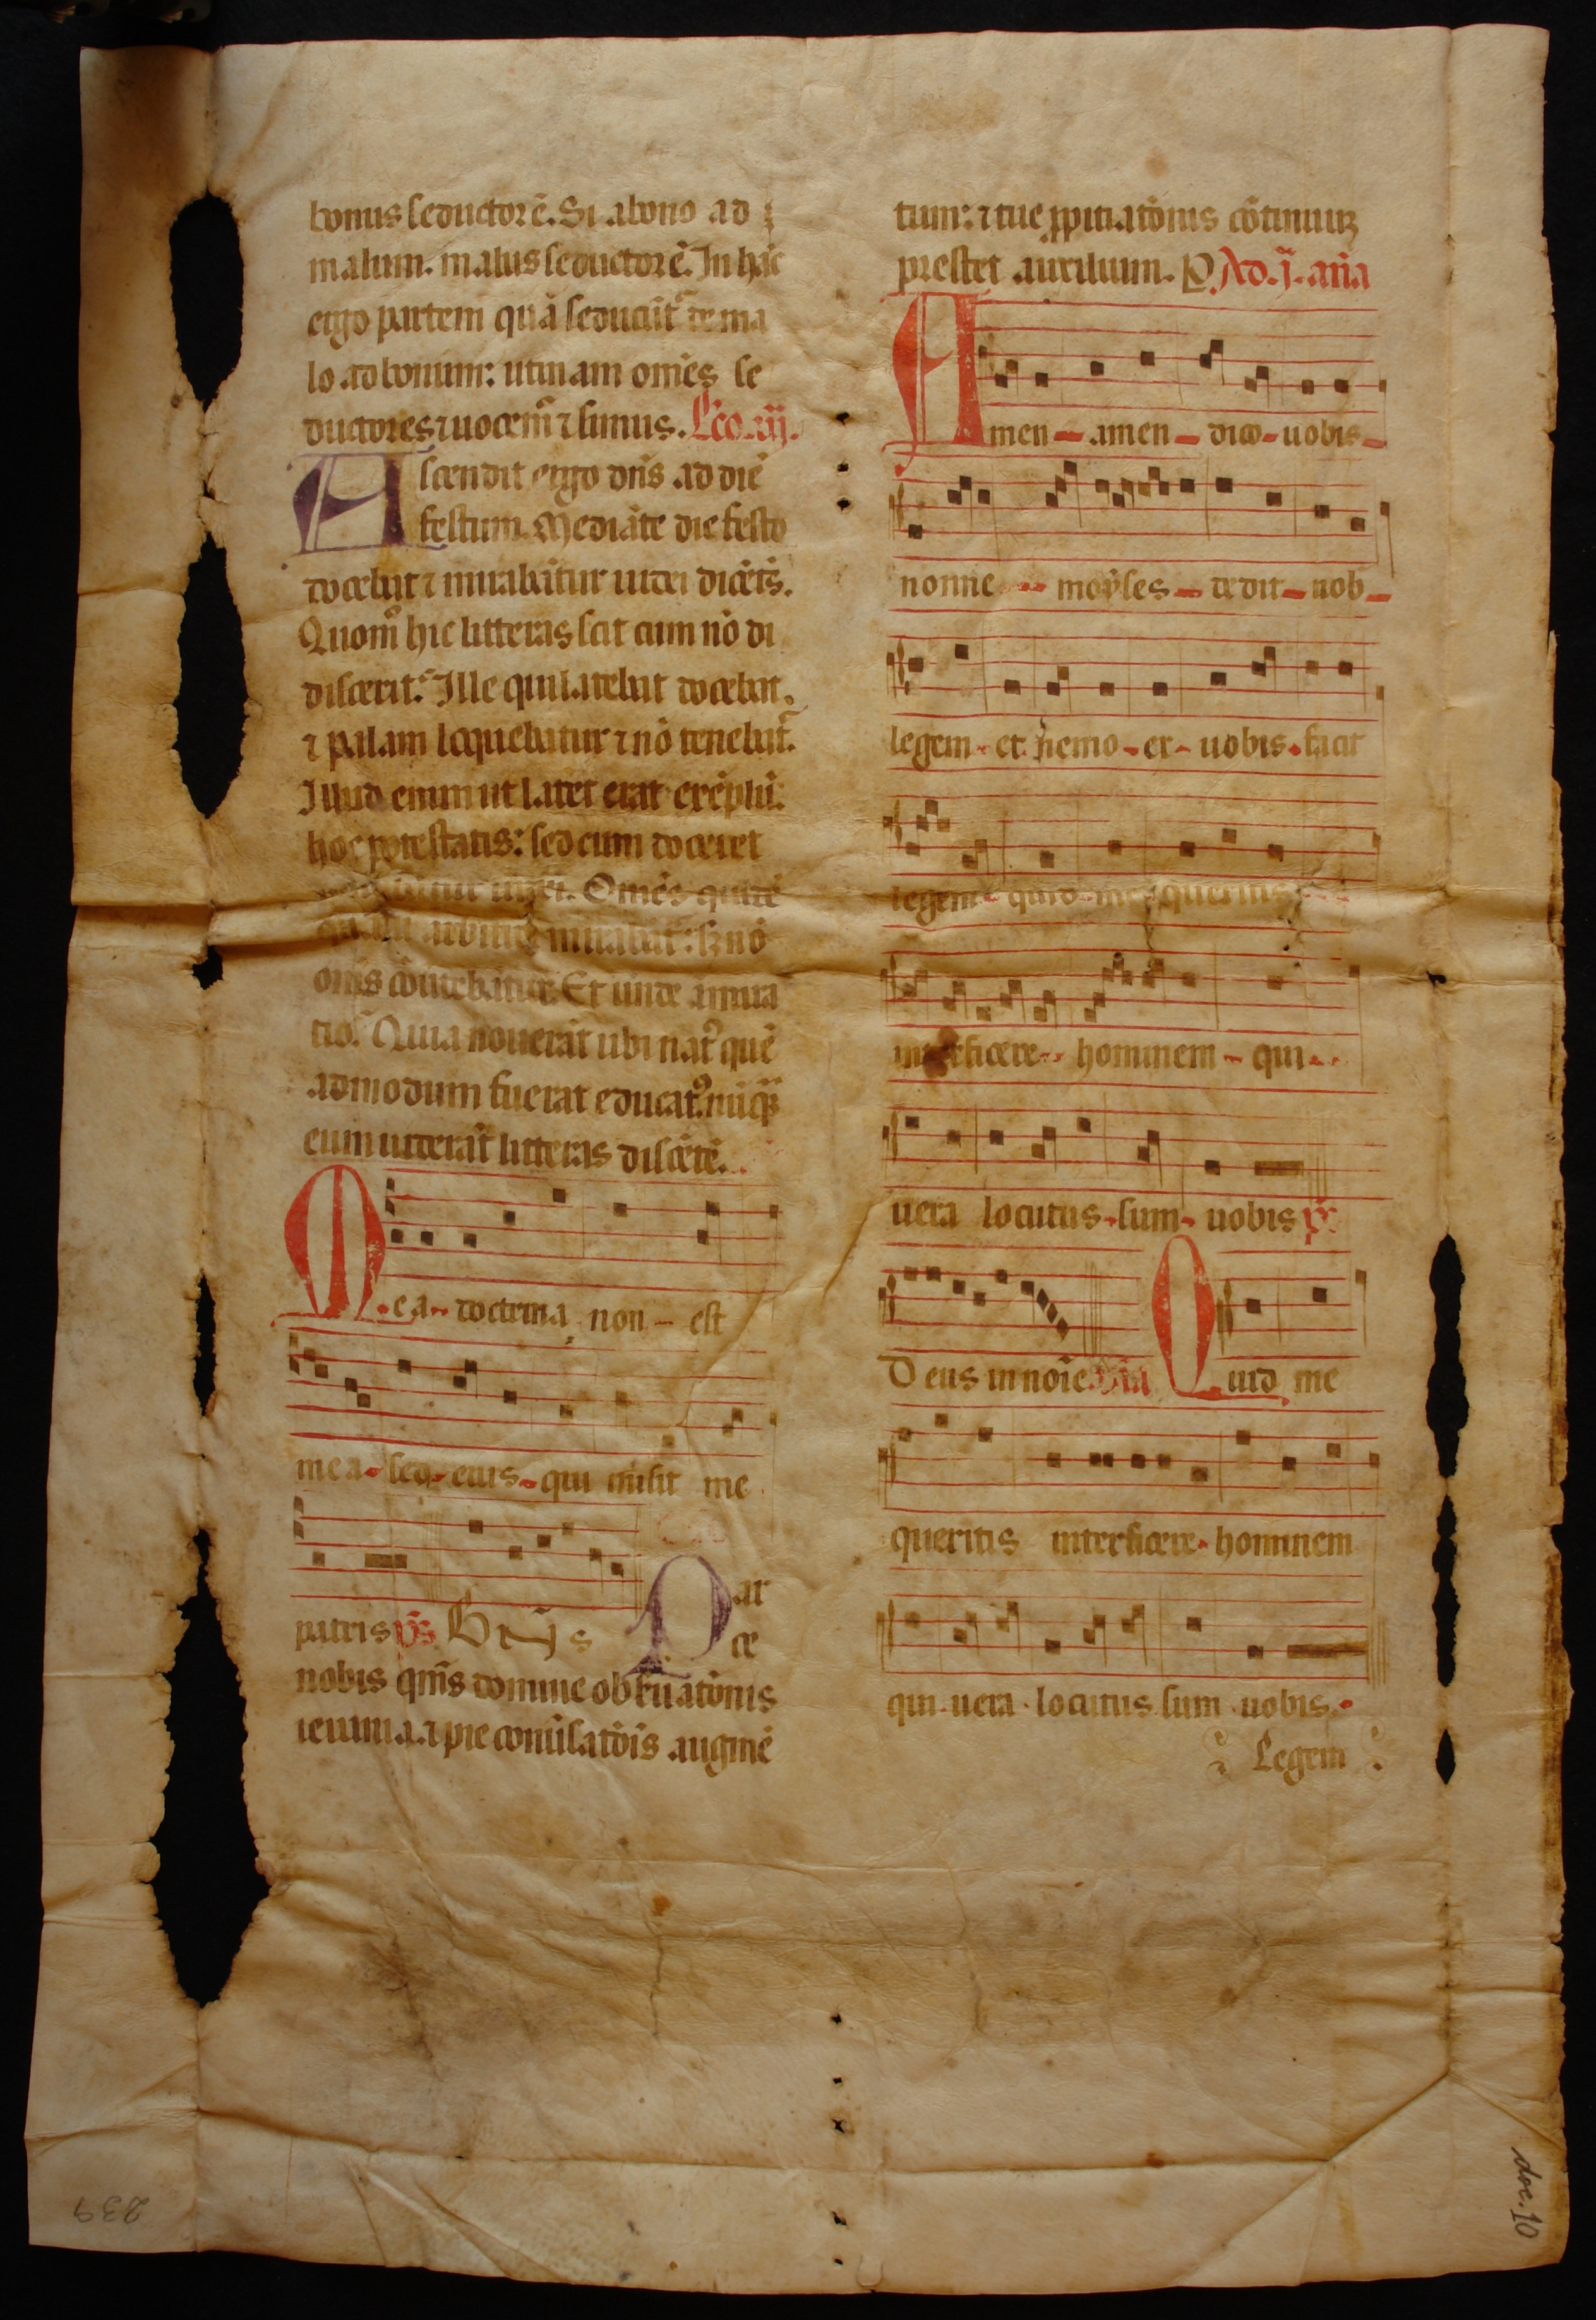 bonus seductorē. Si a bono ad
malum. malus seductorē. In hāc
ergo partem quā seducūt᷑ de ma
lo ad bonum: utinam om̄es se
ductores ⁊ uocem᷒ ⁊ simus. Lc̄o. iij.
Ascendit ergo dn̄s ad diē
festum. Mediāte die festo
docebat ⁊ mirabātur iudei dicētes.
Quom̊ hic litteras scit cum nō di
discerit. Ille qui latebat docebat.
⁊ palam loquebatur ⁊ nō tenebat᷑.
Illud enim ut latet erat exēplū:
hoc potestatis: sed cum doceret
Om̄es quidē
mirabāt᷑: sȝ nō
om̄s cōuertebātur. Et unde amira
tio. Quia nouerāt ubi nat᷒ quē
admodum fuerat educat᷒. nūq̄ȝ
eum uiderāt litteras discētē.
Mea doctrina non est
mea sed eius qui misit me
patris p̄s. G
Par
ce
nobis qm̄s domine obseruatōnis
ieiunia. ⁊ pie conuersatōis augmē
tum: ⁊ tue ꝓpitiatōnis cōtinuuȝ
prestet auxilium. P. Ad. j. an̄a
Amen amen dico uobis
nonne moyses dedit uob
legem et nemo ex uobis facit
legem quid me queritis
interficere hominem qui
uera locutus sum uobis p̄s
Deus in noīe Quid me
queritis interficere hominem
qui uera locutus sum uobis
Legem
doc. 10
239